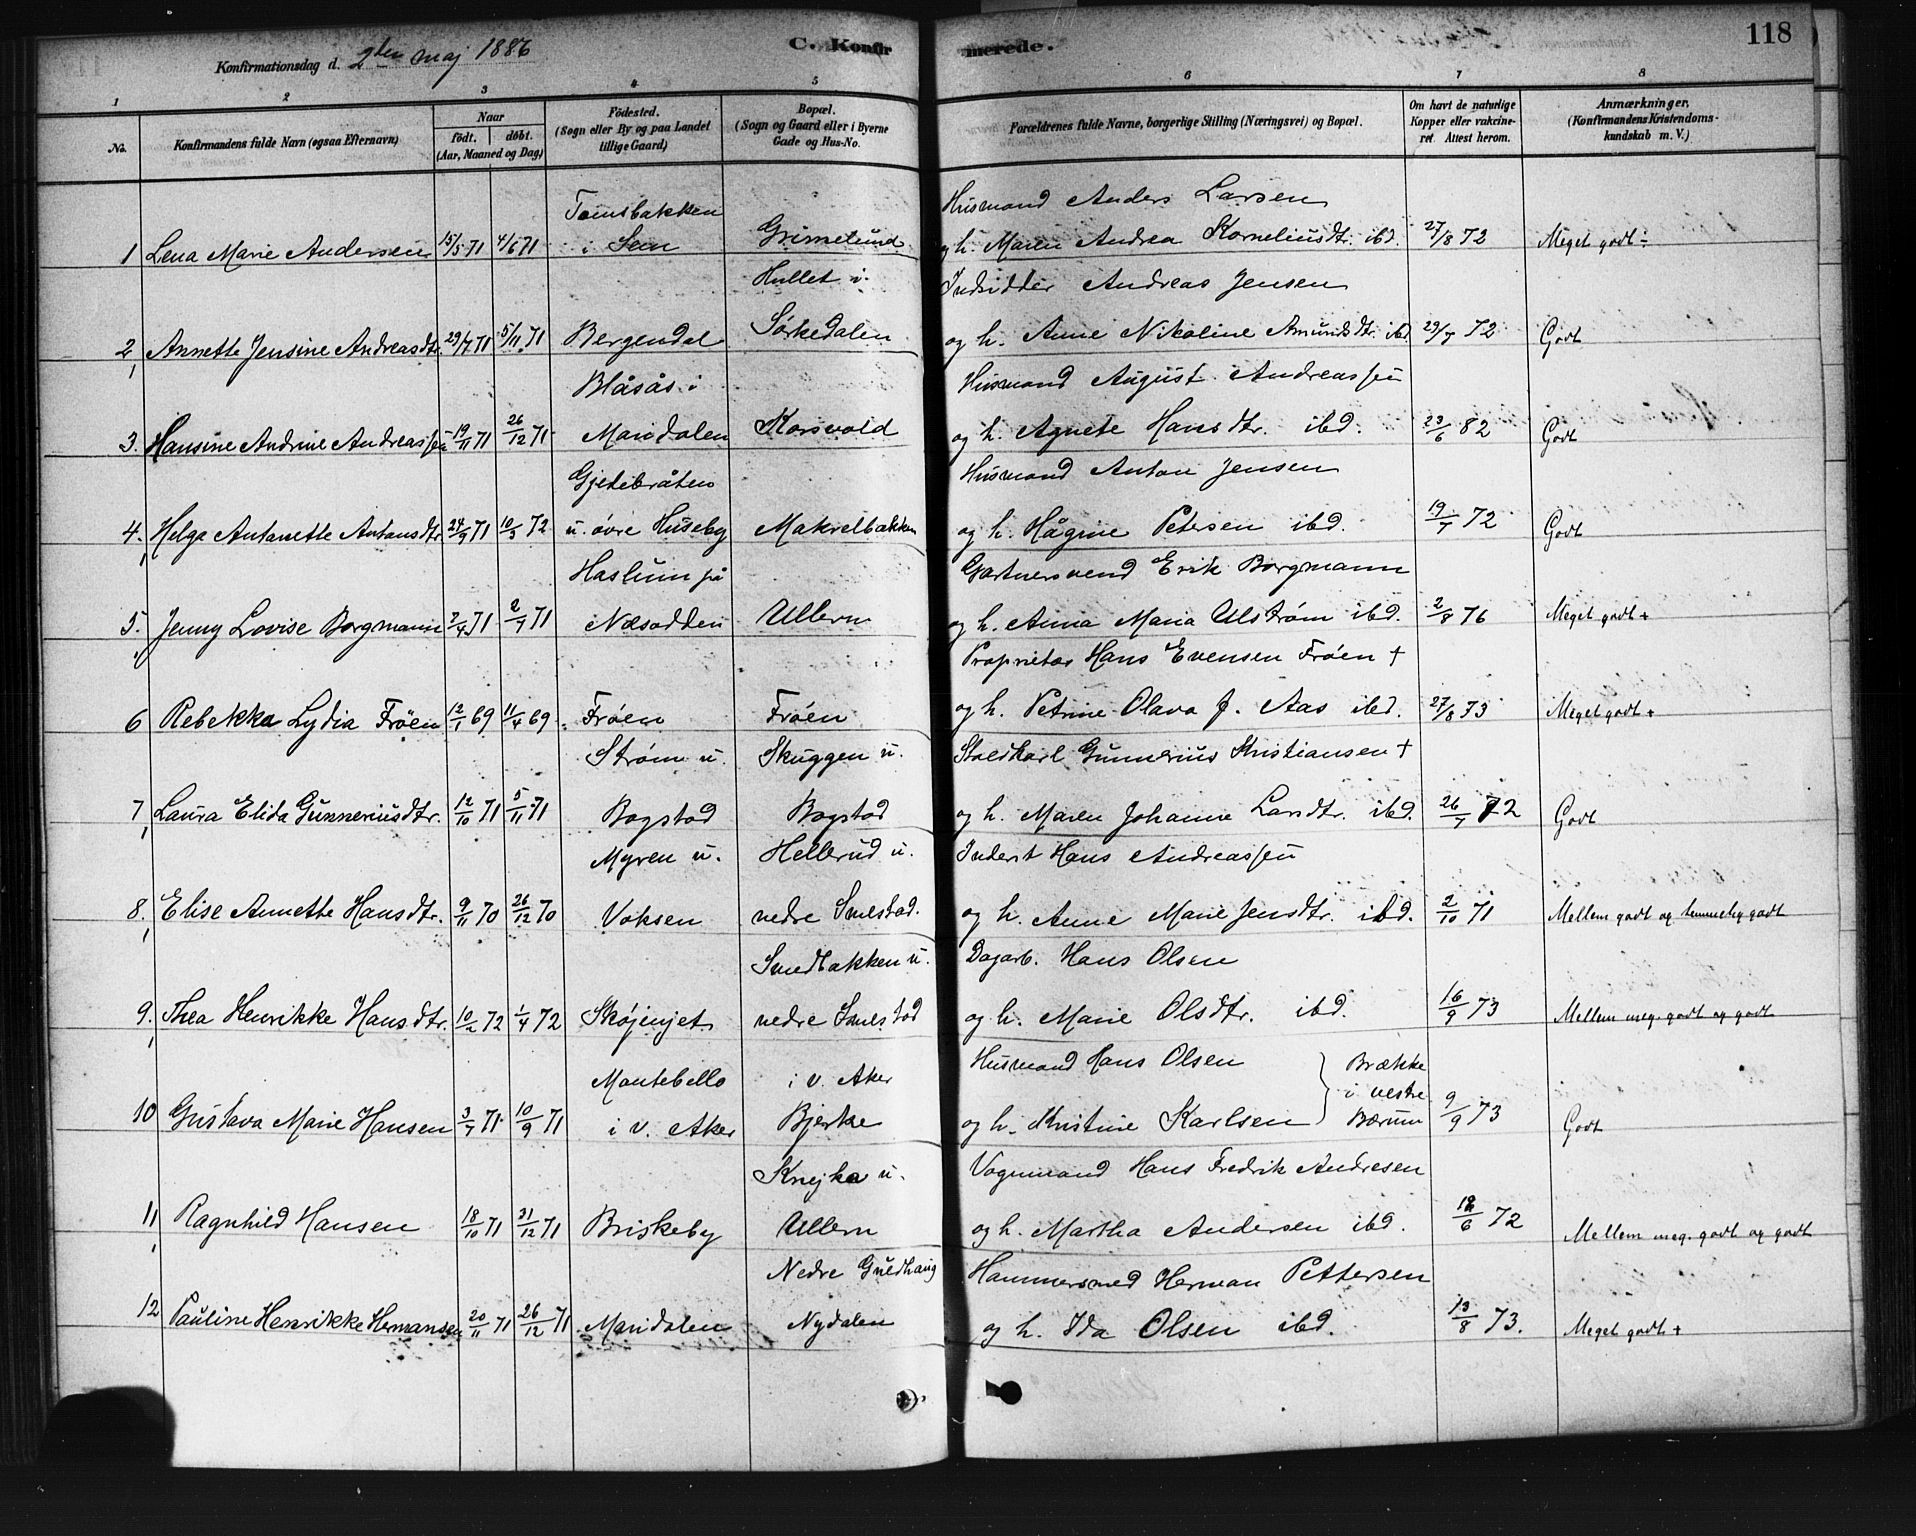 118
C. Konfirmerede.
Konfirmationsdag d. 2den maj 1886
1 2 3 4 5 6 7 8
No. Konfirmandens fulde Navn (ogsaa Efternavn) Naar født. døbt. (Aar, Maaned og Dag) Fødested. (Sogn eller By og paa Landet tillige Gaard.) Bopæl. (Sogn og Gaard eller i Byerne Gade og Hus-No. Forældrenes fulde Navne, borgerlige Stilling (Næringsvei) og Bopæl. Om havt de naturlige Kopper eller vakcineret Attest herom. Anmærkninger. (Konfirmandens Kristendomskundskab m. V.)
Husmand Anders Larsen
1 Lena Marie Andersen 15/5 71 4/6 71 i Sem Grimelund og h. Maren Andrea Korneliusdtr. ibd. 27/8 72 Meget godt ÷
Hullet i Indsidder Andreas Jensen
2 Annette Jensine Andreasdtr. 29/7 71 5/11 71 Bergendal Sørkedalen og h. Anne Nikoline Amundsdtr. ibd 29/7 72 Godt
Blåsås i Husmand August Andreassen
3. Hansine Andrine Andreassen 19/11 71 26/12 71 Maridalen Korsvold og h. Agnete Hansdtr. ibd. 23/6 82 Godt
Gjetebråten Husmand Anton Jensen
4. Helga Antonette Antonsdtr. 24/9 71 10/3 72 u. øvre Huseby Makrelbakken og h. Hågine Petersen ibd. 19/7 72 Godt
Haslum på Gartnersvend Erik Borgmann
5. Jenny Lovise Borgmann 2/4 71 2/7 71 Næsodden Ullern og h. Anna Maria Alstrøm ibd. 2/8 76 Meget godt +
Proprietær Hans Evensen Frøen †
6 Rebekka Lydia Frøen 12/1 69 11/4 69 Frøen Frøen og h. Petrine Olava f. Aas ibd. 27/8 73 Meget godt +
Strøm u. Skuggen u. Staldkarl Gunnerius Kristiansen †
7 Laura Elida Gunneriusdtr. 12/10 71 5/11 71 Bogstad Bogstad og h. Maren Johanne Larsdtr. ibd. 26/7 72 Godt
Myren u. Hellerud u. Inderst Hans Andreassen
8. Elise Annette Hansdtr. 9/11 70 26/12 70 Voksen nedre Smestad. og h. Anne Marie Jensdtr. ibd. 2/10 71 Mellem godt og temmelig godt
Smedbakken u. Dagarb. Hans Olsen
9. Thea Henrikke Hansdtr. 10/2 72 1/4 72 Skøjenjet nedre Smestad og h. Marie Olsdtr. ibd. 16/9 73 Mellem meg. godt og godt
Montebello i v. Aker Husmand Hans Olsen } Brække i vestre Bærum
10 Gustava Marie Hansen 3/7 71 10/9 71 i v. Aker Bjerke og h. Kristine Karlsen 9/9 73 Godt
Knejka u. Vognmand Hans Fredrik Andresen
11 Ragnhild Hansen 18/10 71 31/12 71 Briskeby Ullern og h. Martha Andersen ibd. 6 72 Mellem meg. godt og godt
Nedre Guldhaug Hammersmed Herman Pettersen
12 Pauline Henrikke Hermansen 20/11 71 26/12 71 Maridalen Nydalen og h. Ida Olsen ibd. 13/8 73. Meget godt +